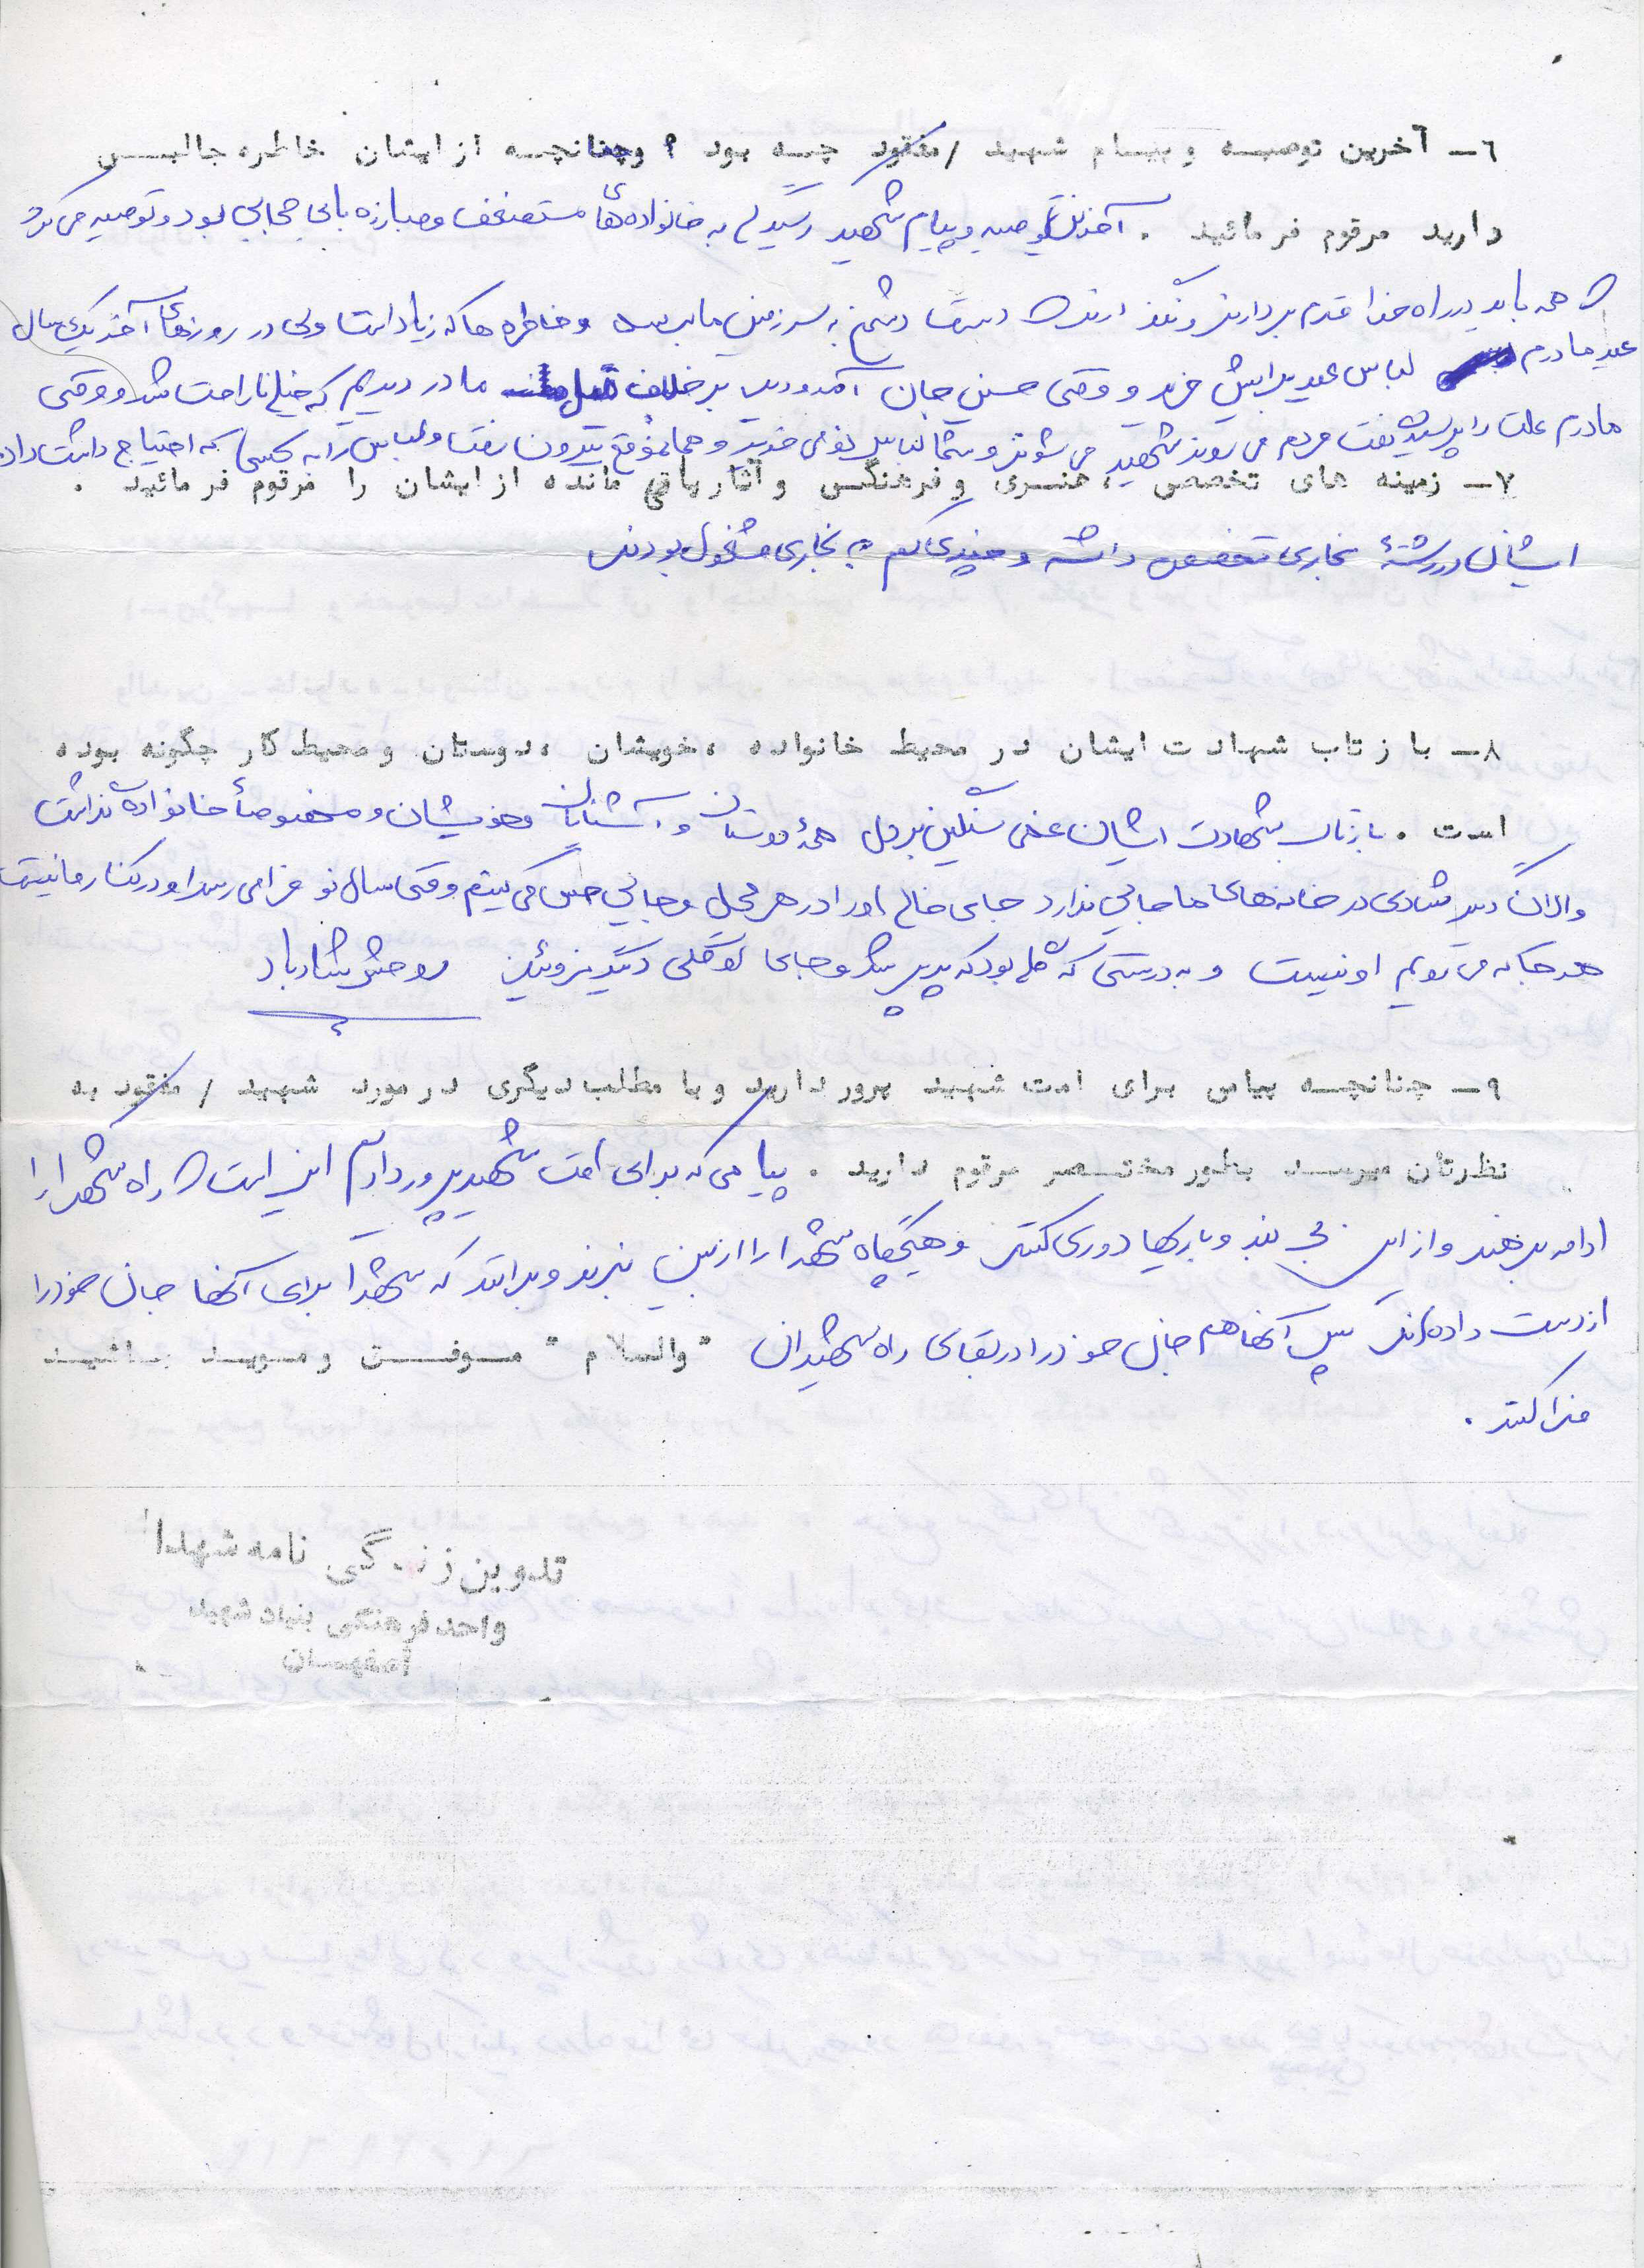 ٦ـ آخرین توصیه و پیام شهید /مفقود چه بود ؟ وچنانچه از ایشان خاطره جالبی
دارید مرقوم فرمائید . آخرین توصیه و پیام شهید رسیدگی به خانواده‌های مستضعف و مبارزه با بی حجابی بود و توصیه می کرد
که همه باید در راه خدا قدم بردارند و نگذارند که دست دشمن به سرزمین ما برسد و خاطره ها که زیاد است ولی در روزهای آخر یک سال
عید مادرم لباس عید برایش خرید و وقتی حسین جان آمد و دید برخلاف ما در دیدیم که خیلی ناراحت شد و وقتی
مادرم علت را پرسید گفت مردم می روند شهید می شوند و شما لباس نو می خرید و همانموقع بیرون رفت و لباس را به کسی که احتیاج داشت داد.
۷ـ زمینه های تخصصی ، هنری و فرهنگی و آثار باقی مانده از ایشان را مرقوم فرمائید .
ایشان در رشتهٔ نجاری تخصص داشته و به نجاری مشغول بودند
۸ـ بازتاب شهادت ایشان در محیط خانواده ،خویشان ،دوستان و محیط کار چگونه بوده
است . بازتاب شهادت ایشان غمی سنگین بر دل همهٔ دوستان و آشنایان و خویشان و مخصوصأ خانواده گذاشت
و الان دیگر شادی در خانه‌های ما جایی ندارد جای خالی او را در هر محل و جایی حس می کنیم وقتی سال نو فرا می رسد او در کنار ما نیست
هر جا که می رویم او نیست و به درستی که گلی بود که پرپر شد و جای او گلی دیگر نروئید روحش شاد باد
۹ـ چنانچه پیامی برای امت شهید پرور دارید و یا مطلب دیگری در مورد شهید / مفقود به
نظرتان میرسد بطور مختصر مرقوم دارید . پیامی که برای امت شهید پرور دارم این است که راه شهدا را
ادامه بدهند و از این بی بند و باریها دوری کنند و هیچگاه شهدا را از بین نبرند و بدانند که شهدا برای آنها جان خود را
از دست داده‌اند پس آنها هم جان خود را در بقای راه شهیدان "والسلام" موفق و موید باشید
فدا کنند .
تدوین زندگی نامه شهدا
واحد فرهنگی بنیاد شهید
اصفهان